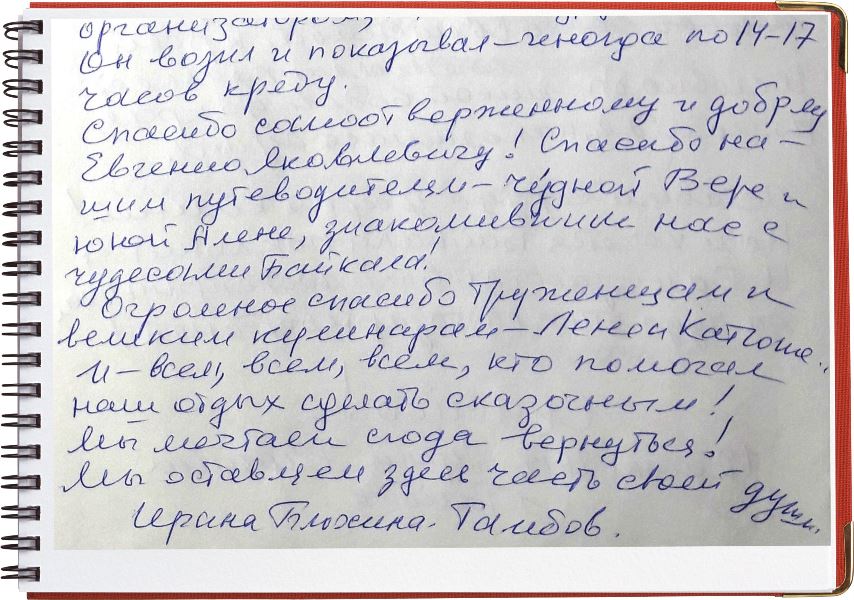 организатором,
Он возил и показывал – иногда по 14–17
часов кряду.
Спасибо самоотверженному и добрму
Евгению Яковлевичу! Спасибо на-
шим путеводителям – чудной Вере и
юной Алене, знакомившим нас с
чудесами Байкала!
Огромное спасибо труженицам и
великим кулинарам – Лене и Катюше..
И – всем, всем, всем, кто помогал
наш отдых сделать сказочным!
Мы мечтаем сюда вернуться!
Мы оставляем здесь часть своей души.
Ирина Блохина. Тамбов.